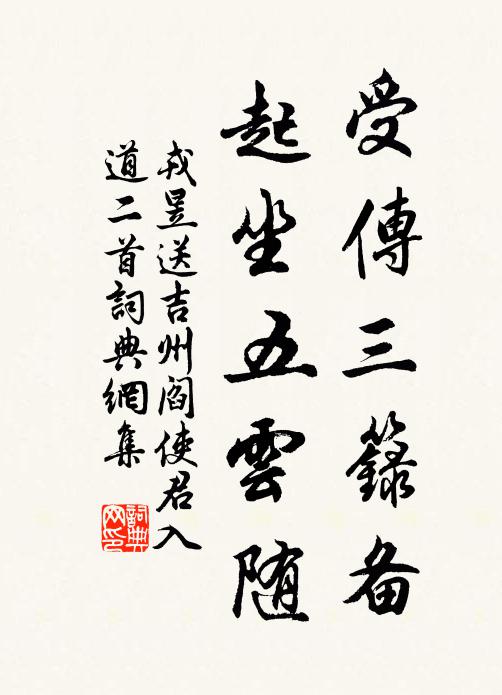 受傳三籙备
起坐五雲随
戎昱送吉州阎使君入
道二首詞典網集
詞典
网印